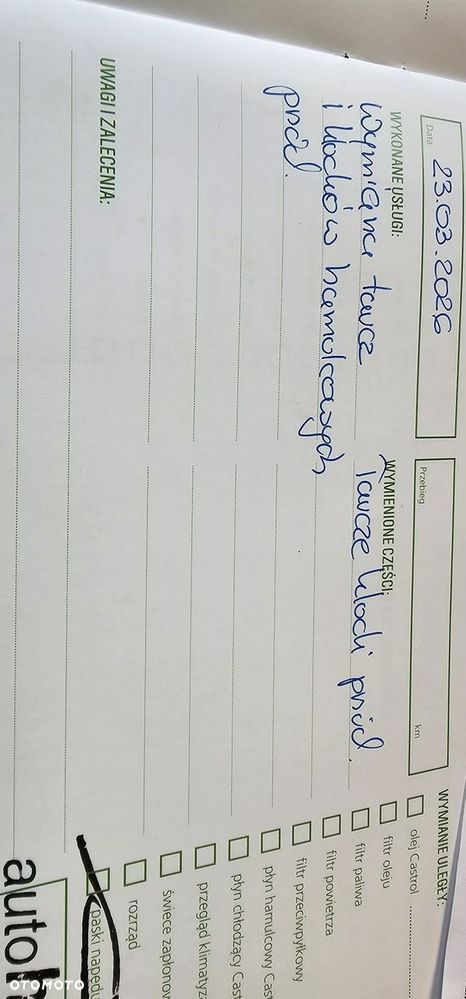 Data 23.03.2026
Przebieg km
WYKONANE USŁUGI:
Wymiana tarcz
i klocków hamulcowych
przód.
WYMIENIONE CZĘŚCI:
Tarcze klocki przód.
WYMIANIE ULEGŁY:
olej Castrol
filtr oleju
filtr paliwa
filtr powietrza
filtr przeciwpyłkowy
płyn hamulcowy Cas
płyn chłodzący Cast
przegląd klimatyza
świece zapłonow
rozrząd
paski napędu
UWAGI I ZALECENIA:
auto
OTOMOTO